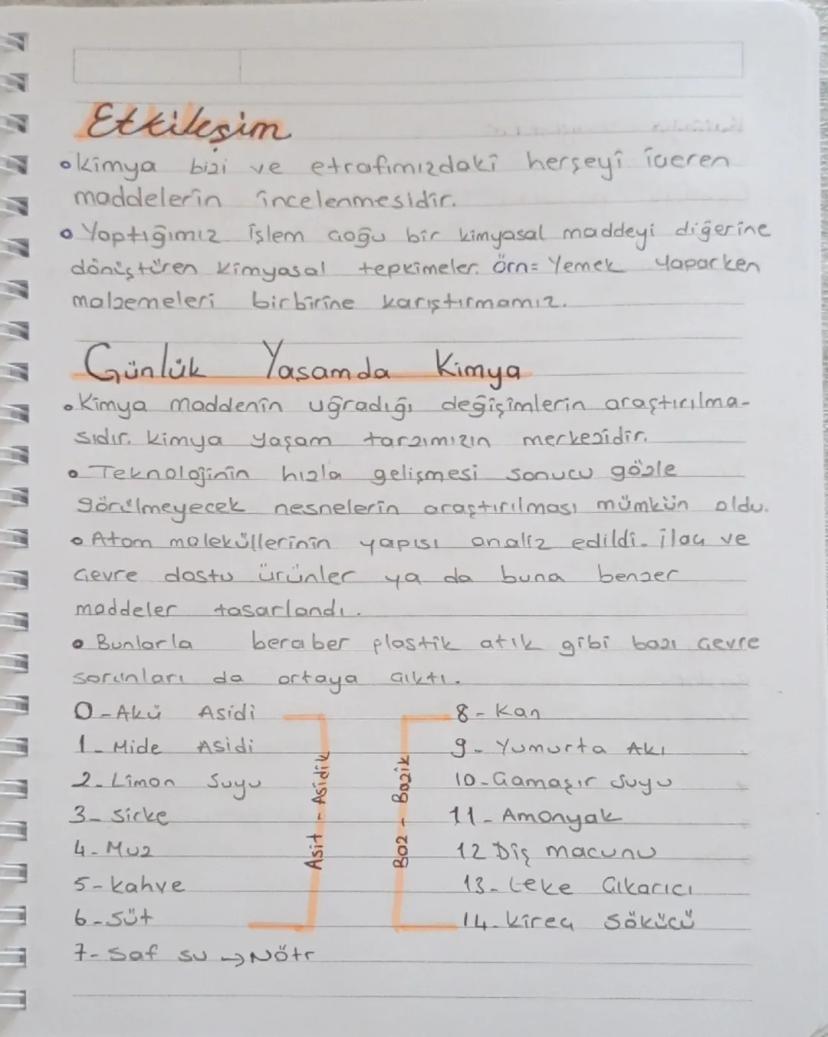 Etkileşim
• Kimya bizi ve etrafımızdaki herşeyi içeren
maddelerin incelenmesidir.
• Yaptığımız işlem çoğu bir kimyasal maddeyi diğerine
dönüştüren kimyasal tepkimeler. Örn= Yemek yaparken
malzemeleri birbirine karıştırmamız.
Günlük Yaşamda Kimya
• Kimya maddenin uğradığı değişimlerin araştırılma-
sıdır. Kimya yaşam tarzımızın merkezidir.
• Teknolojinin hızla gelişmesi sonucu gözle
görülmeyecek nesnelerin araştırılması mümkün oldu.
• Atom moleküllerinin yapısı analiz edildi. ilaç ve
çevre dostu ürünler ya da buna benzer
maddeler tasarlandı.
• Bunlarla beraber plastik atık gibi bazı çevre
sorunları da ortaya çıktı.
0-Akü Asidi
1-Mide Asidi
2-Limon Suyu
3-Sirke
4-Muz
5-Kahve
6-Süt
7-Saf su → Nötr
Asit-Asidik
Baz-Bazik
8-Kan
9-Yumurta Akı
10-Çamaşır Suyu
11-Amonyak
12 Diş macunu
13-Leke Çıkarıcı
14-Kireç Sökücü